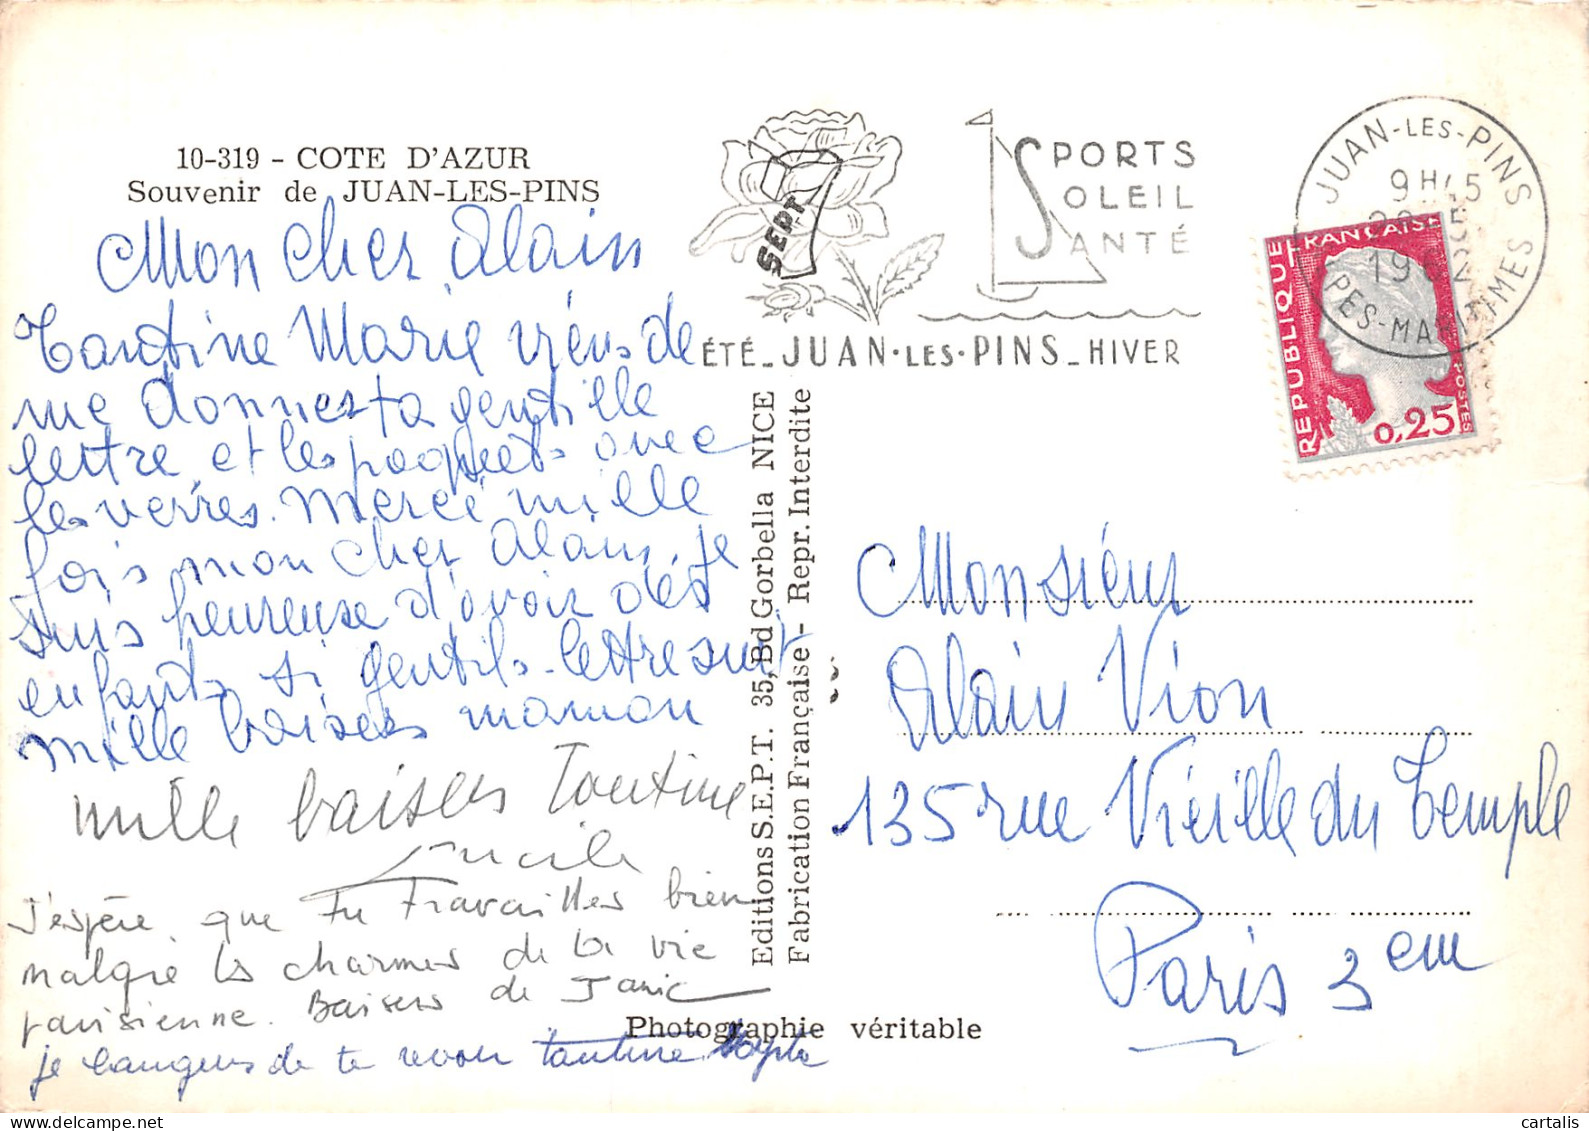 10-319 - COTE D'AZUR
Souvenir de JUAN-LES-PINS
Mon cher Alain
Tantine Marie viens de
me donner ta gentille
lettre et les paquets avec
les verres. Merci mille
fois mon cher Alain, je
suis heureuse d'avoir des
enfants si gentils. lettre suit
mille baisers maman
mille baisers Tantine
Lucile
J'espère que tu travailles bien
malgré les charmes de la vie
parisienne. Baisers de Janic
je langens de te revoir tantine
SEPT
SPORTS
SOLEIL
SANTÉ
ÉTÉ - JUAN·LES·PINS - HIVER
Editions S.E.P.T. 35, Bd Gorbella NICE
Fabrication Française - Repr. Interdite
Photographie véritable
JUAN-LES-PINS
9H45
1962
PES-MARITIMES
REPUBLIQUE FRANÇAISE
POSTES
0,25
Monsieur
Alain Vion
135 rue Vieille du Temple
Paris 3em
cartalis
www.delcampe.net